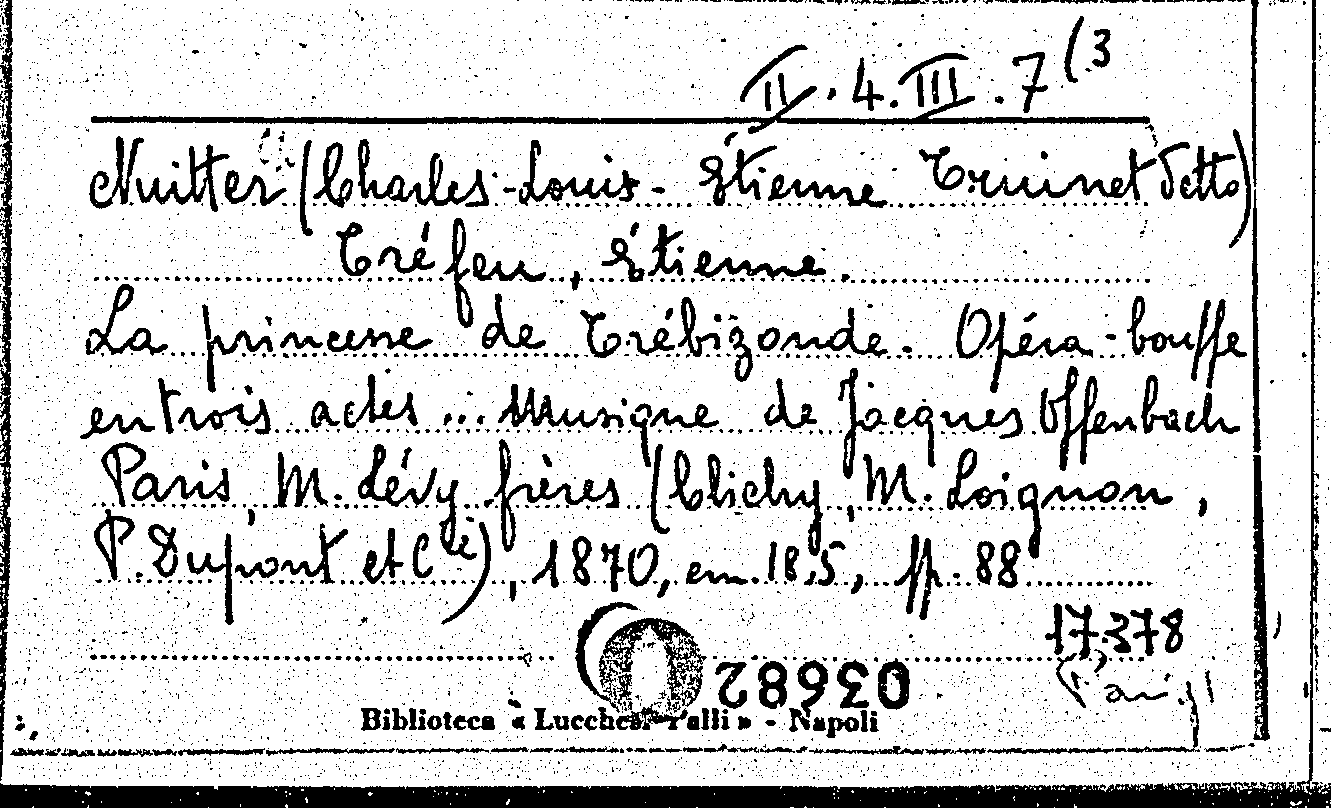 II. 4. III. 7 (3
Nuitter (Charles-Louis-Étienne Truinet detto)
Tréfeu, Étienne.
La princesse de Trébizonde. Opéra-bouffe
en trois actes ... Musique de Jacques Offenbach
Paris, M. Lévy frères (Clichy, M. Loignon,
P. Dupont et Cie), 1870, cm. 18,5, pp. 88
17378
Parigi
Biblioteca « Lucchesi-Palli » - Napoli